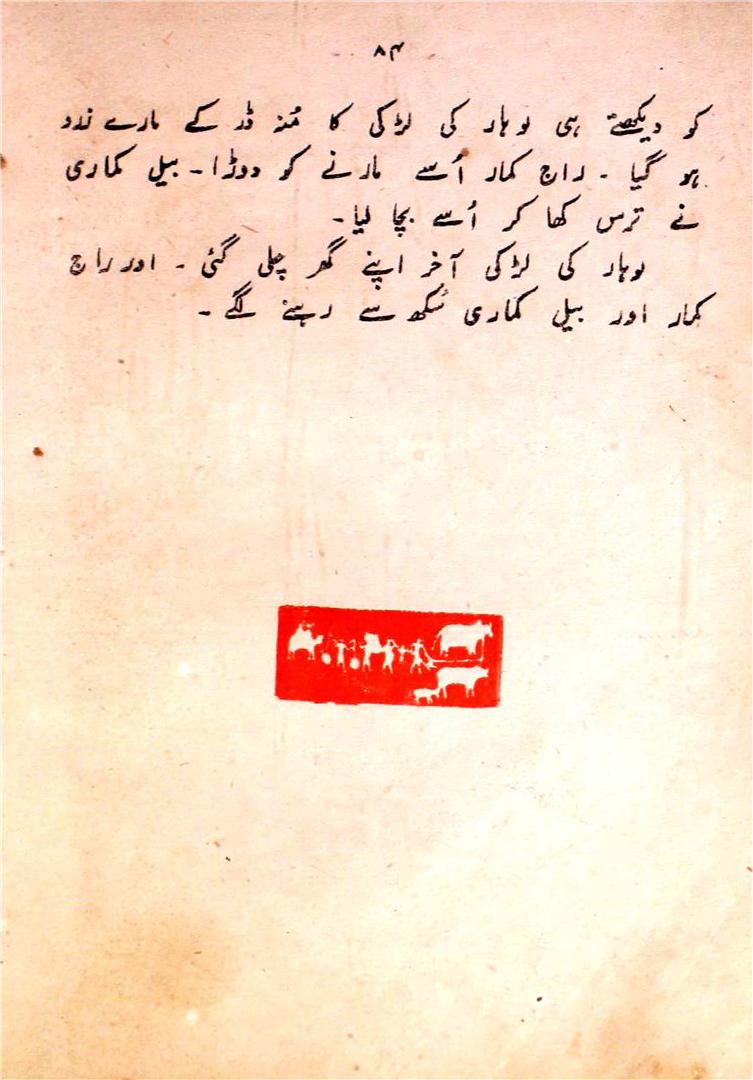 ۸۴
کو دیکھتے ہی لوہار کی لڑکی کا مُنہ ڈر کے مارے زرد
ہو گیا ۔ راج کمار اُسے مارنے کو دوڑا ۔ بیل کماری
نے ترس کھا کر اُسے بچا لیا ۔
لوہار کی لڑکی آخر اپنے گھر چلی گئی ۔ اور راج
کمار اور بیل کماری سُکھ سے رہنے لگے ۔